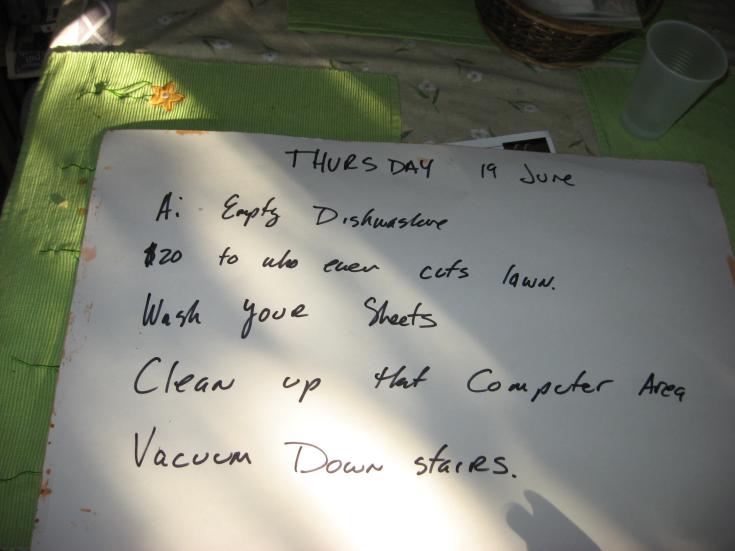 THURSDAY 19 June
A: Empty Dishwasher
$20 to who ever cuts lawn.
Wash your Sheets
Clean up that Computer Area
Vacuum Down stairs.